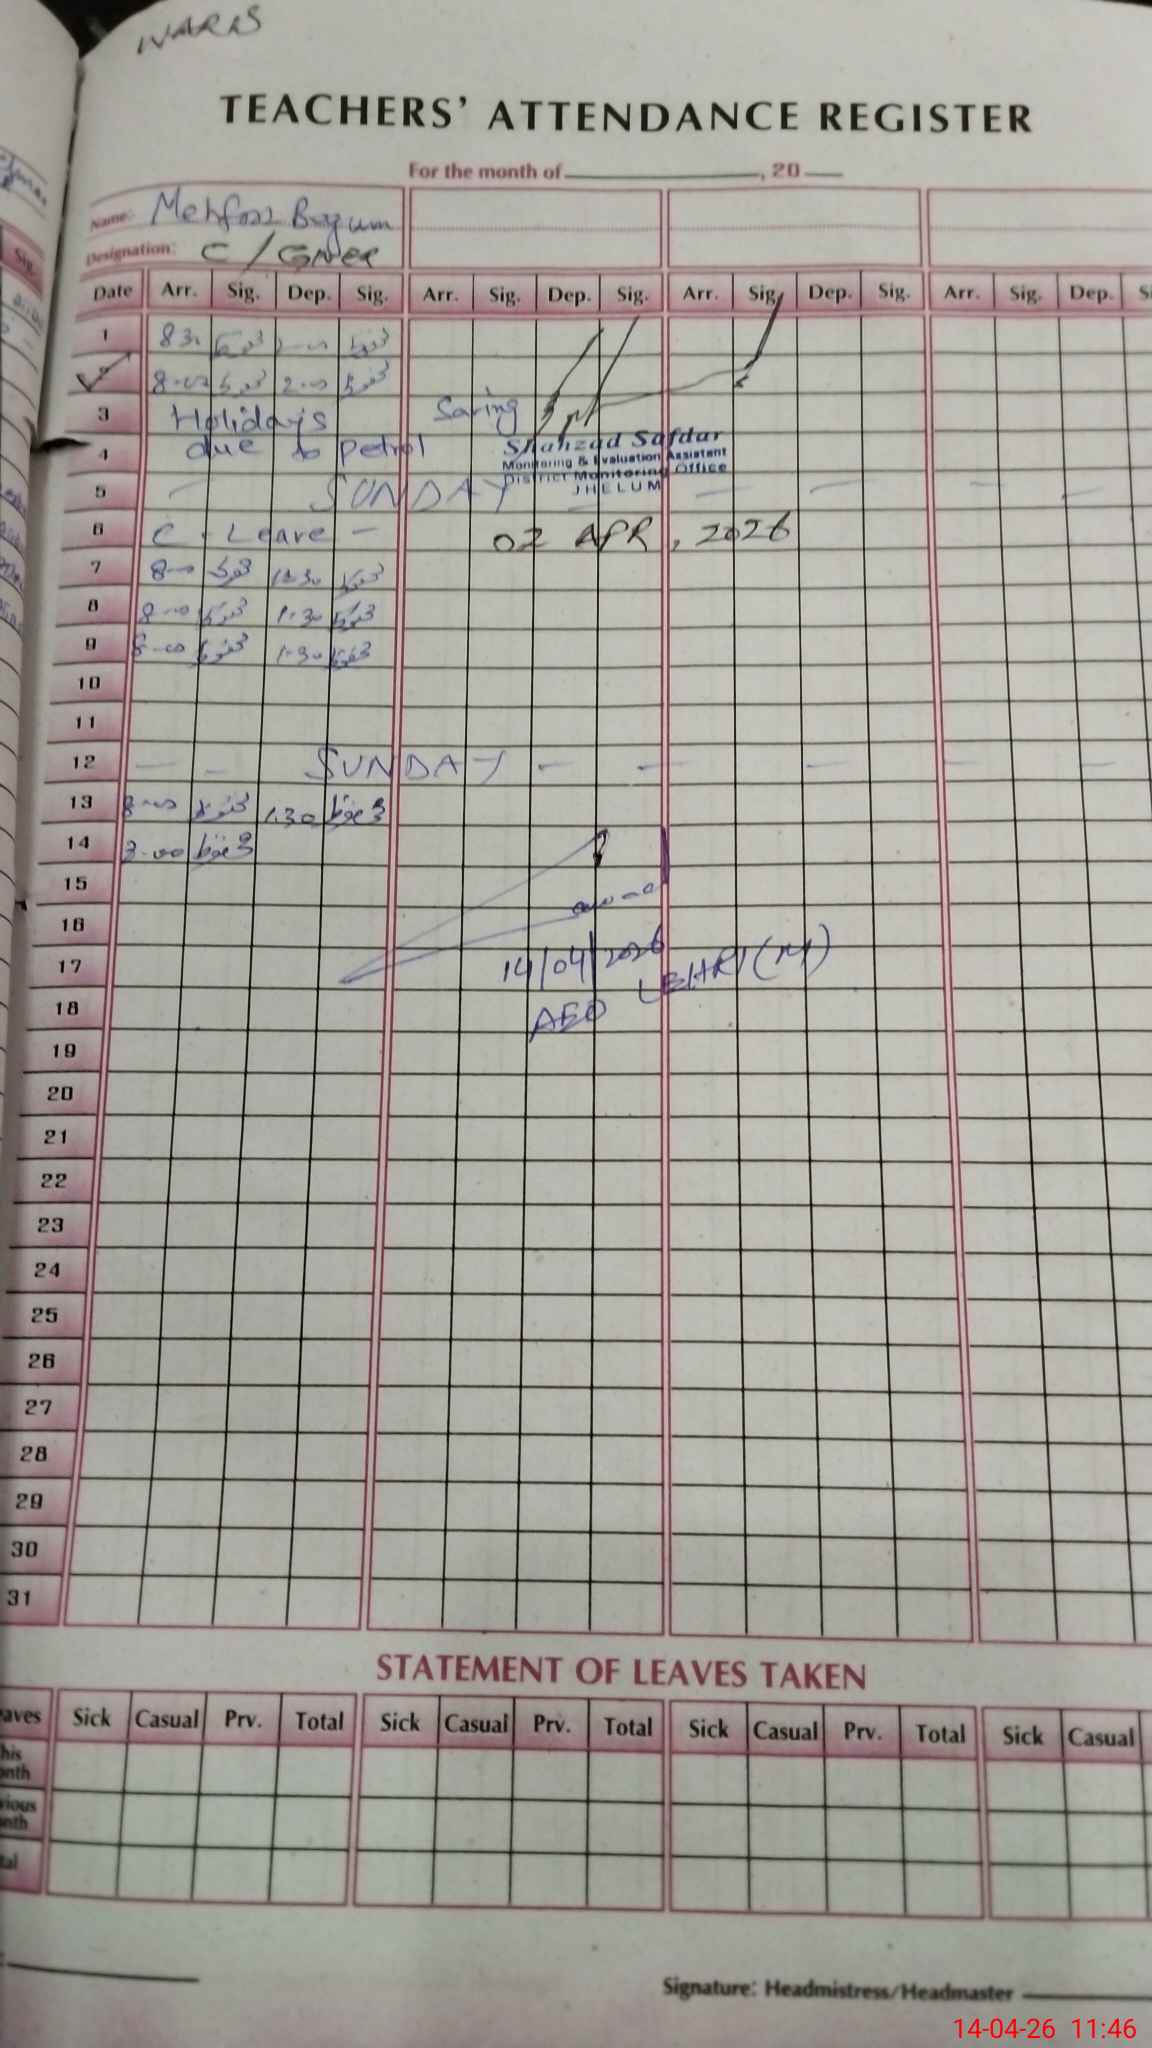 WARIS
TEACHERS' ATTENDANCE REGISTER
For the month of , 20
Name: Mehfooz Begum
Designation: C/Giver
Date Arr. Sig. Dep. Sig. Arr. Sig. Dep. Sig. Arr. Sig. Dep. Sig. Arr. Sig. Dep.
1 8 30 محفوظ 2-00 محفوظ
2 8-00 محفوظ 2-00 محفوظ
3 Holidays Saving
4 due to petrol
Shahzad Safdar
Monitoring & Evaluation Assistant
District Monitoring Office
JHELUM
5 SUNDAY
6 C. Leave -
02 APR, 2026
7 8-00 محفوظ 1-30 محفوظ
8 8-00 محفوظ 1-30 محفوظ
9 8-00 محفوظ 1-30 محفوظ
10
11
12 SUNDAY
13 8-00 محفوظ 1.30 محفوظ
14 8-00 محفوظ
15
16
17 14/04/2026
18 AEO LEHRI (M)
19
20
21
22
23
24
25
26
27
28
29
30
31
STATEMENT OF LEAVES TAKEN
Sick Casual Prv. Total Sick Casual Prv. Total Sick Casual Prv. Total Sick Casual
Signature: Headmistress/Headmaster
14-04-26 11:46